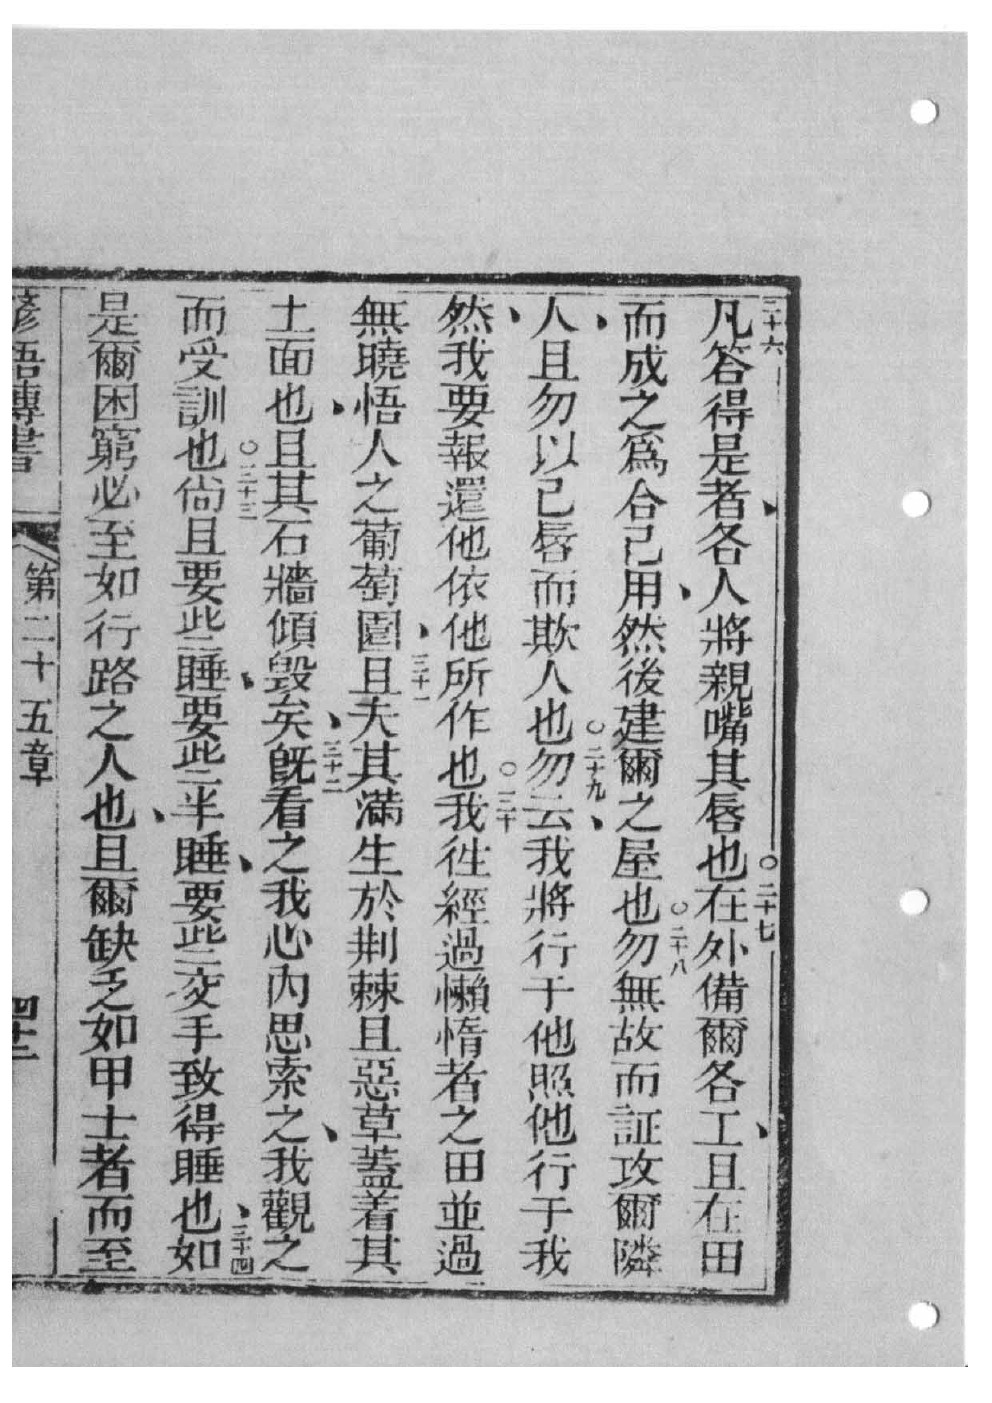 二十六凡答得是者、各人將親嘴其唇也○二十七在外備爾各工、且在田
而成之爲合己用、然後建爾之屋也○二十八勿無故而証攻爾隣
人、且勿以己唇而欺人也○二十九勿云、我將行于他照他行于我
然、我要報還他依他所作也○三十我徃經過懶惰者之田並過
無曉悟人之葡萄園、三十一且夫其滿生於荆棘且惡草蓋着其
土面也、且其石牆傾毀矣、三十二既看之我心內思索之、我觀之
而受訓也○三十三尙且要些睡、要些半睡、要些交手致得睡也、三十四如
是爾困窮必至如行路之人也、且爾缺乏如甲士者而至
諺語傳書 第二十五章 四十二